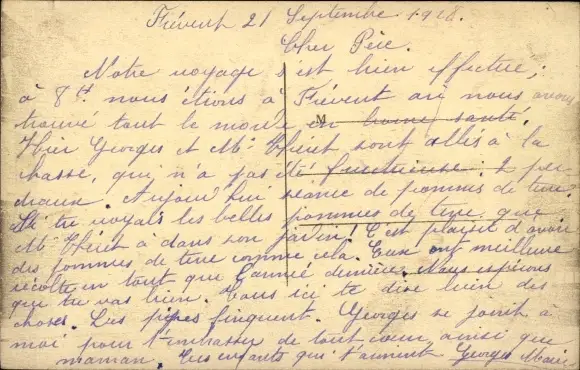 Frévent 21 Septembre 1918.
Cher Père.
Notre voyage s'est bien effectué;
à 8h nous étions à Frévent où nous avons
trouvé tout le monde en bonne santé.
Hier Georges et Mr sont allés à la
chasse, qui n'a pas été fructueuse. 2 per-
dreaux. Aujourd'hui séance de pommes de terre.
Si tu voyais les belles pommes de terre que
Mr à dans son jardin! C'est plaisir d'avoir
des pommes de terre comme cela. Eux ont meilleure
récolte en tout que l'année dernière. Nous espérons
que tu vas bien. Tous ici te dise bien des
choses. Les pipes Georges se joint à
moi pour t'embrasser de tout cœur ainsi que
maman. Tes enfants qui t'aiment Georges
M